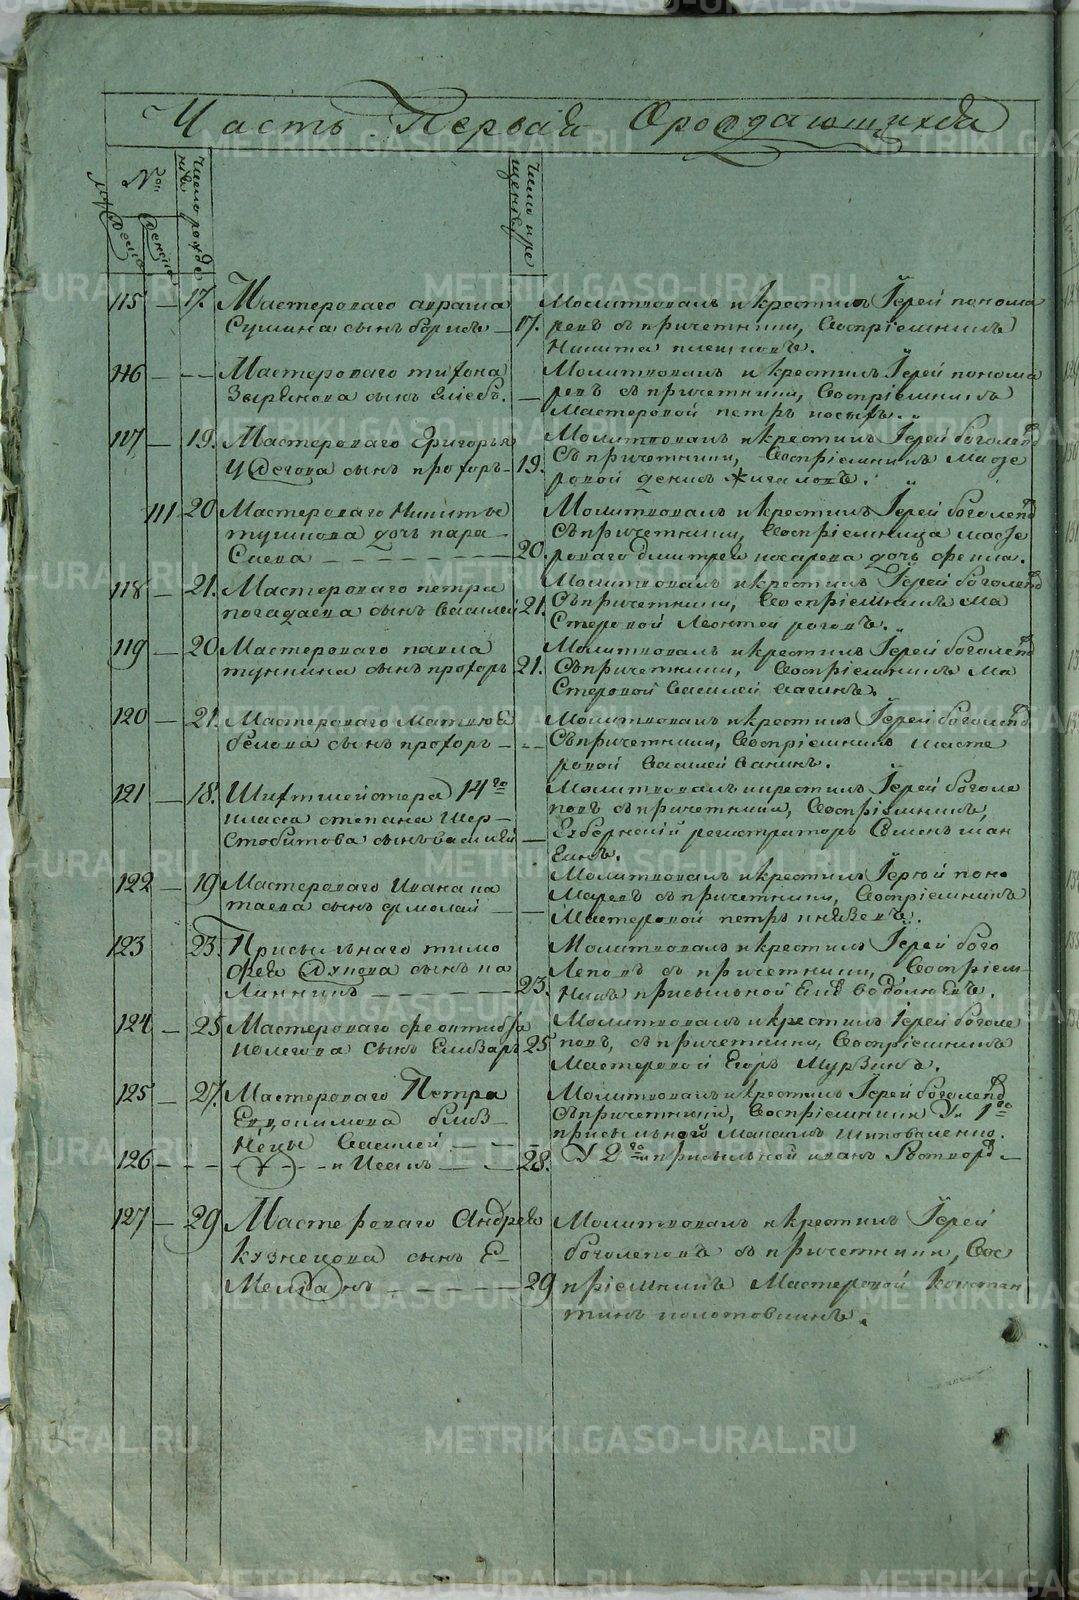 Часть Первая Орождающихся
№
Мужеска
Женска
Число рожде
нія
Число кре
щенія
115 — 17. Мастероваго аврама
Сулина сынъ борисъ — 17.
Молитвовалъ и крестилъ Їерей понома
ревъ съ причетники, Воспріемникъ
Никита плешковъ.
116 — — Мастероваго тихона
Зырянова сынъ Глебъ. —
Молитвовалъ и крестилъ Їерей понома
ревъ съ причетники, Воспріемникъ
Мастеровой петръ косыхъ.
117 — 19. Мастероваго Григорья
сынъ прохоръ — 19.
Молитвовалъ и крестилъ Їерей боголепо
Съ причетники, Воспріемникъ Масте
ровой денисъ жигаловъ.
111 — 20 Мастероваго Никиты
тункова дочь пара-
Саева — 20.
Молитвовалъ и крестилъ Їерей боголепо
Съ причетники, Воспріемница Масте
роваго дмитрея косарева дочь фекла.
118 — 21. Мастероваго петра
погадаева сынъ Василей 21.
Молитвовалъ и крестилъ Їерей боголепо
Съ причетники, Воспріемникъ Ма
Стеровой Леонтей роговъ.
119 — 20 Мастероваго павла
тункина сынъ прохоръ 21.
Молитвовалъ и крестилъ Їерей боголепо
Съ причетники, Воспріемникъ Ма
Стеровой Василей
120 — 21. Мастероваго Матвея
белова сынъ прохоръ — —
Молитвовалъ и крестилъ Їерей боголепо
Съ причетники, Воспріемникъ Масте
ровой Василей Ванинъ.
121 — 18. Шихтмейстера 14го
класса степана Шер-
Стобитова сынъ василей —
Молитвовалъ и крестилъ Їерей боголе
повъ съ причетники, Воспріемникъ
Губернский регистраторъ Семенъ
122 — 19 Мастероваго Ивана ка
таева сынъ ермолай — —
Молитвовалъ и крестилъ Їерей поно
Маревъ съ причетники, Воспріемникъ
Мастеровой петръ князевъ.
123 23. Присыльнаго тимо
фея Лунева сынъ ка
Линникъ — 23.
Молитвовалъ и крестилъ Їерей бого
Леповъ съ причетники, Воспріем-
Никъ присыльной
124 — 25 Мастероваго
Колегова сынъ Елизаръ 25
Молитвовалъ и крестилъ Їерей боголе
повъ, съ причетники, Воспріемникъ
Мастеровой Егоръ Мурзинъ.
125 — 27. Мастероваго Петра
Евдокимова близ-
Нецы Василей — —
Молитвовалъ и крестилъ Їерей боголепо
Съ причетники, Воспріемники У 1го
присыльной Максимъ Шаповаленко.
126 — — — и — 28.
У 2го присыльной иванъ
127 — 29 Мастероваго Андрея
кузнецова сынъ Е-
Мельянъ — 29
Молитвовалъ и крестилъ Їерей
боголеповъ съ причетники, Вос
пріемникъ Мастеровой Констан
тинъ колотовкинъ.